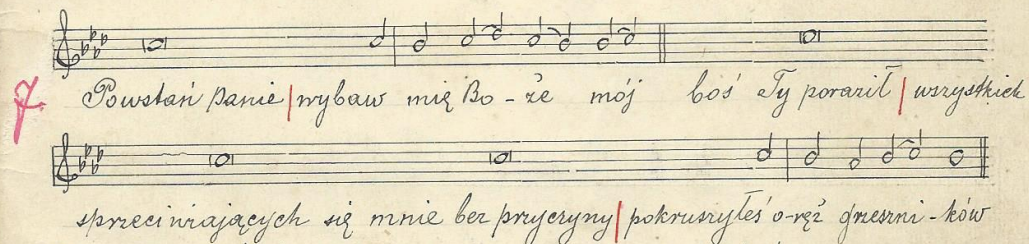 7. Powstań Panie | wybaw mię Bo - że mój boś Ty poraził | wszystkich
sprzeciwiających się mnie bez przyczyny | pokruszyłeś o-ręż grzeszni - ków